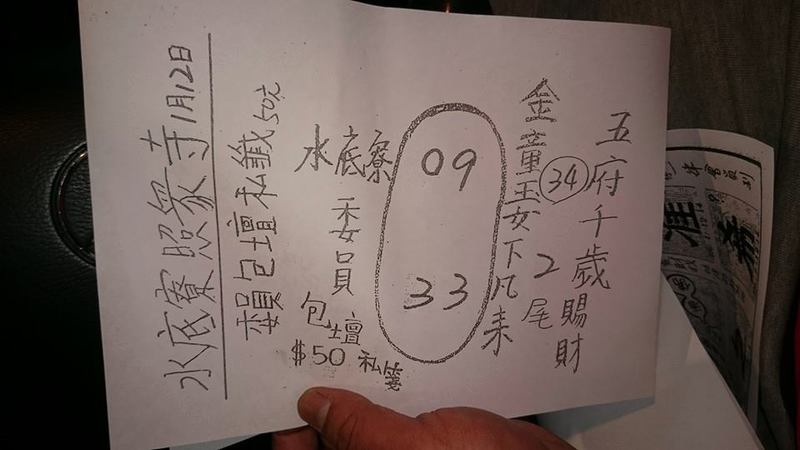 水底寮照眾寺1月12日
賴包壇私籤50元
五府千歲賜財
34
2尾
金童玉女下凡來
09
33
水底寮
委員
包壇
$50 私箋